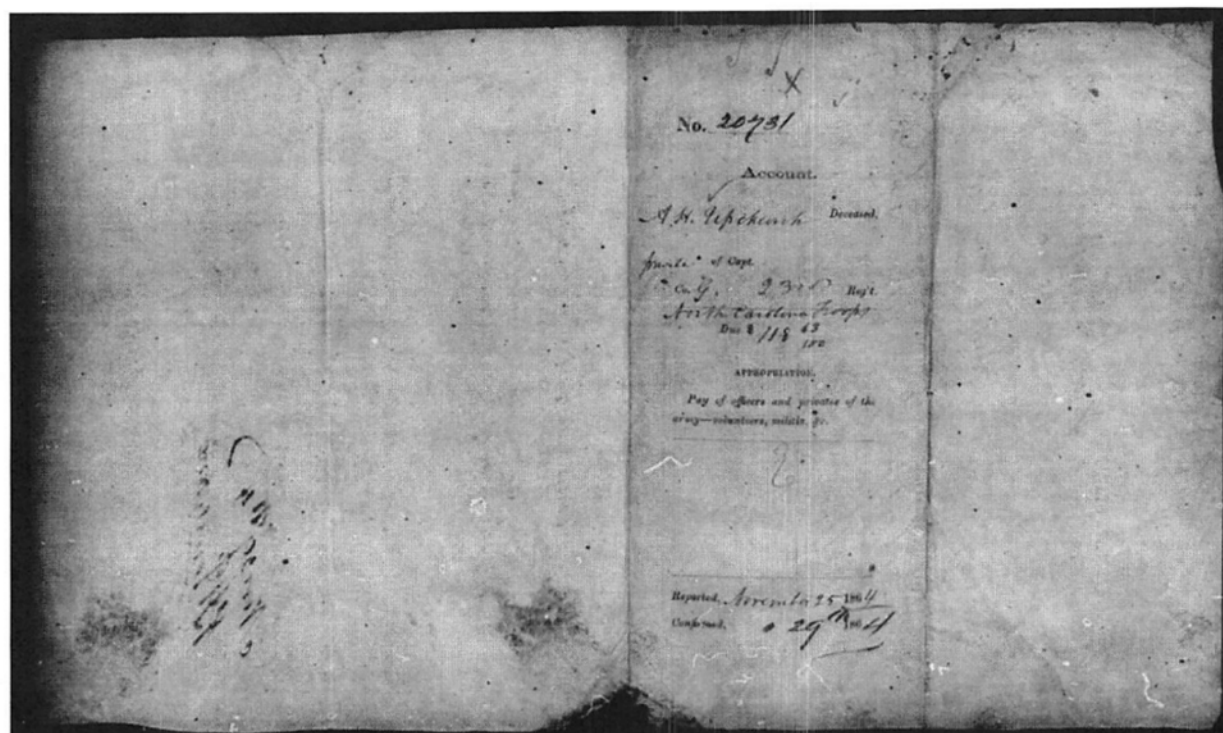 No. 20731
Account.
A. H. Upchurch Deceased.
private of Capt.
Co. G, 23rd Reg't.
North Carolina Troops
Due $ 118 63/100
APPROPRIATION.
Pay of officers and privates of the
army—volunteers, militia, &c.
Reported, November 25 1864
Confirmed, " 29th 1864